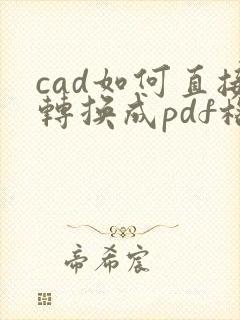 cad如何直接
轉換成pdf格
帝希宸